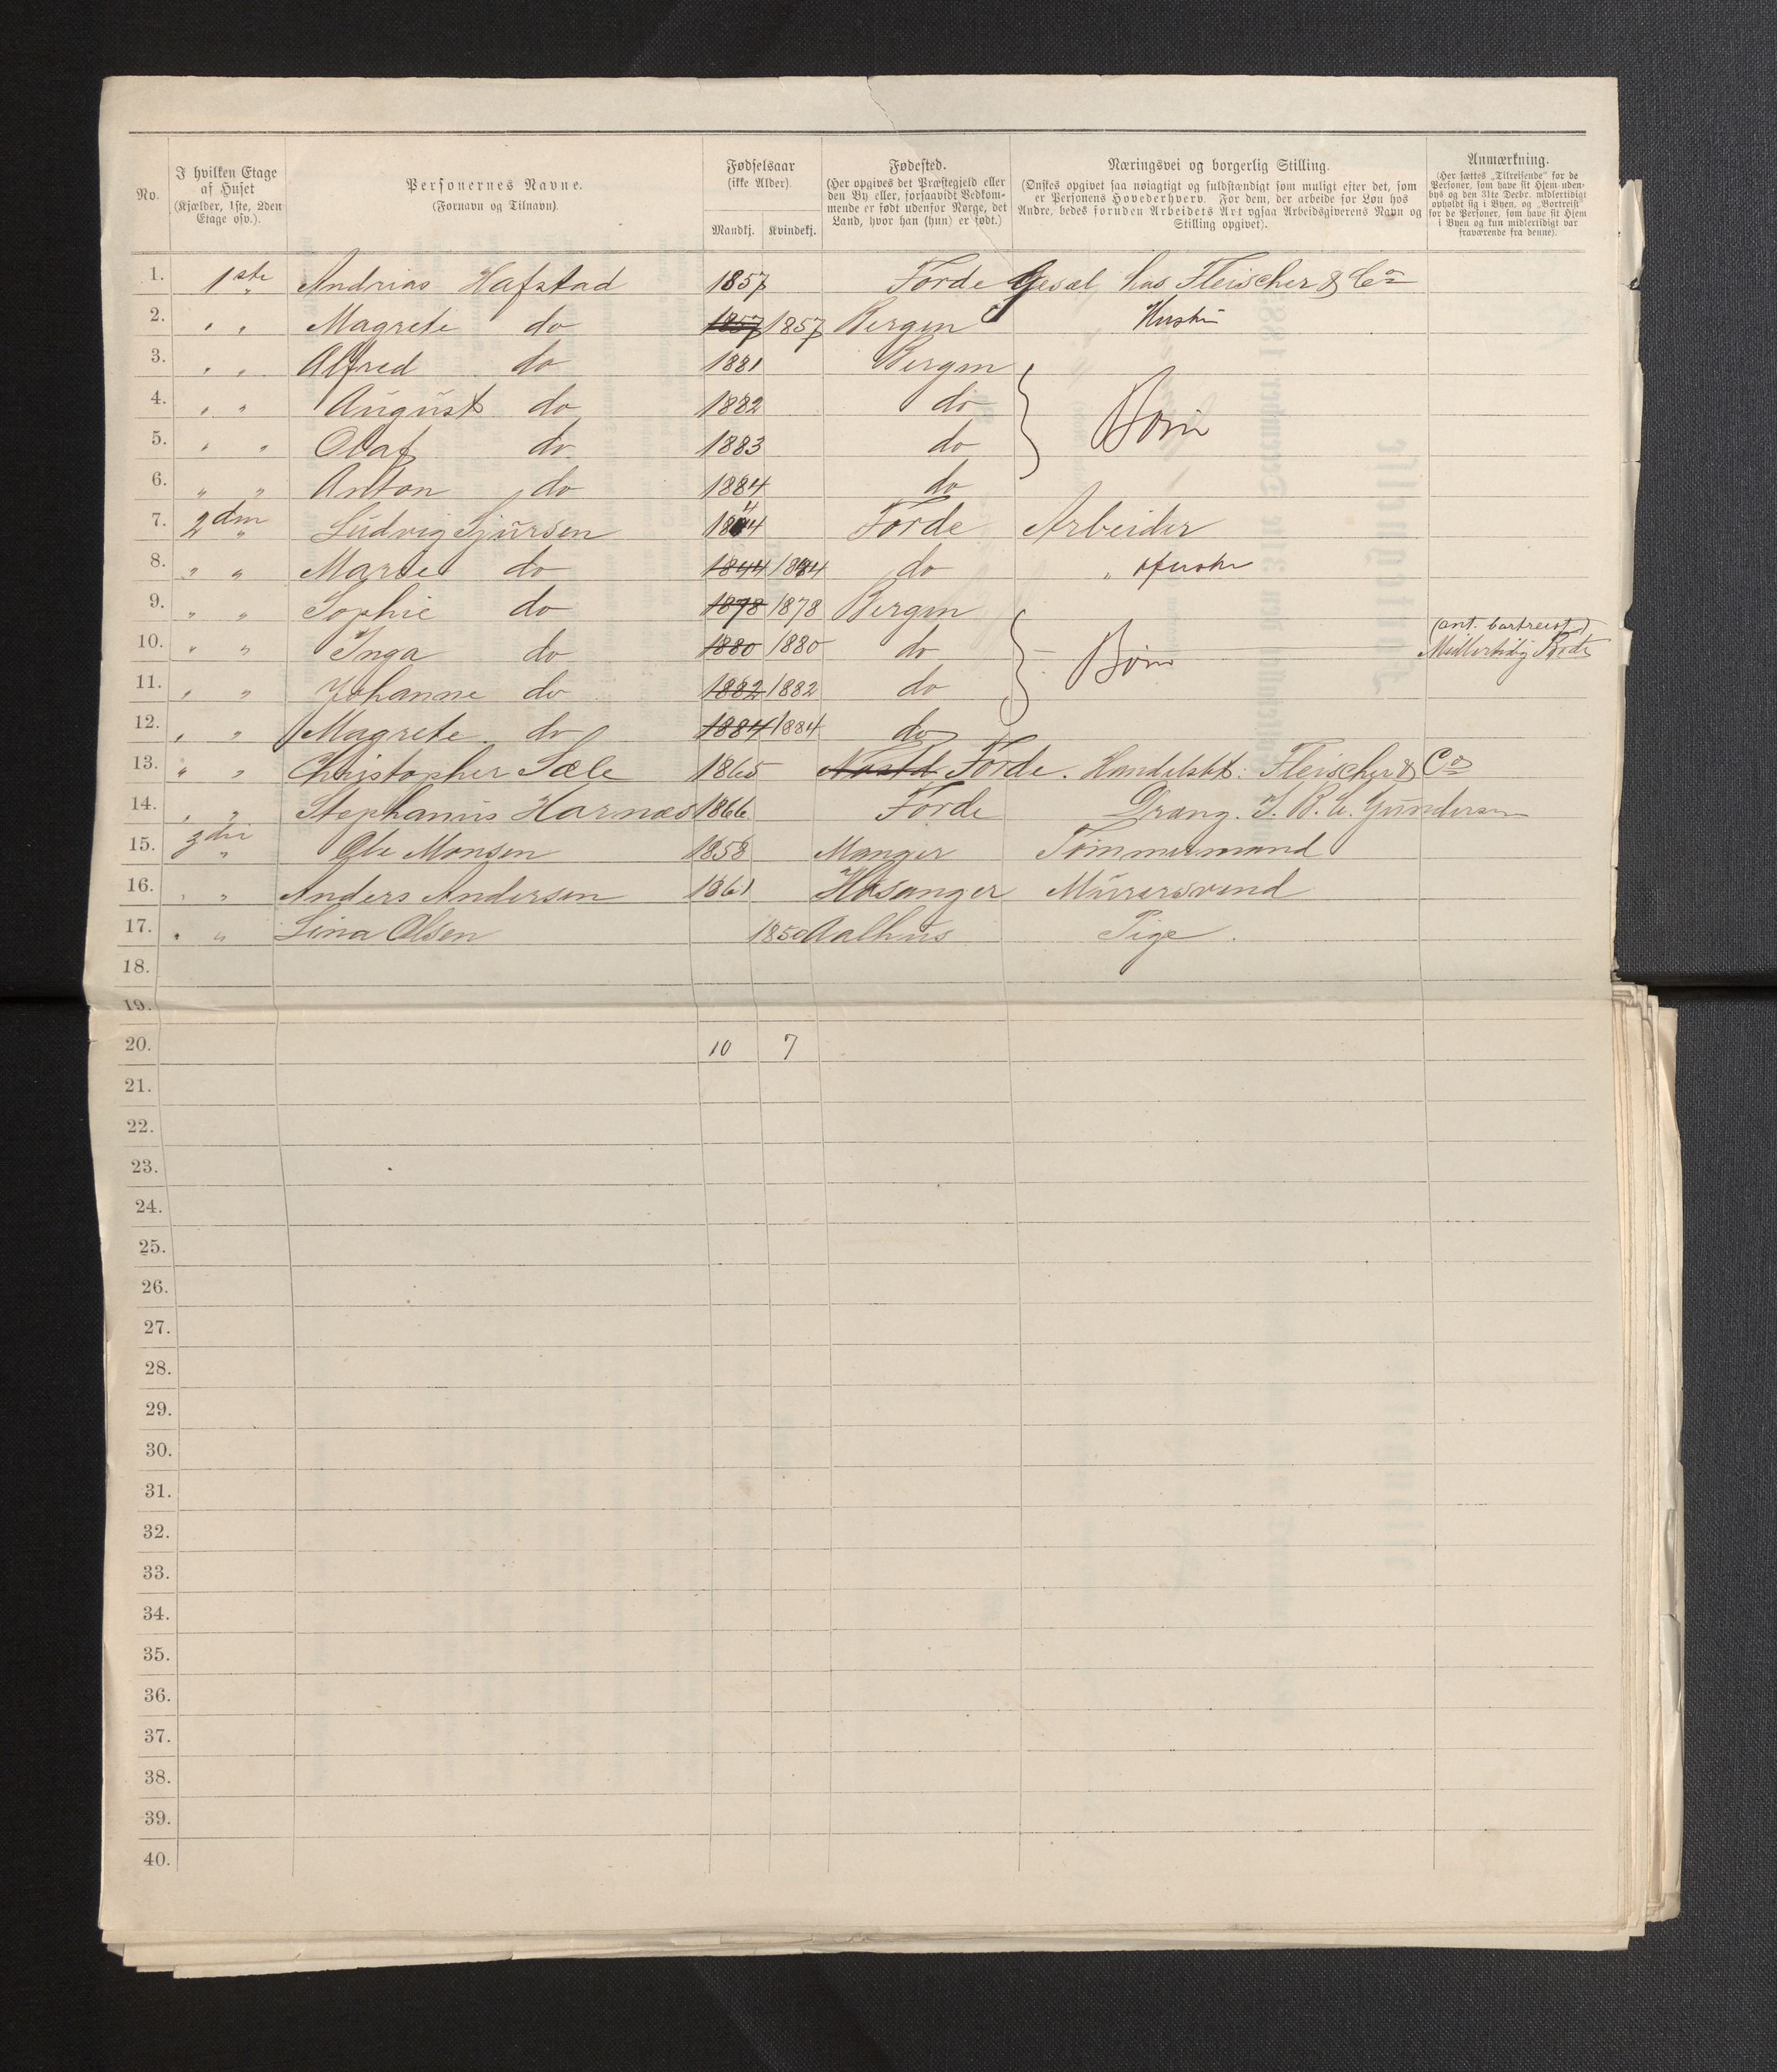 No.
I hvilken Etage
af Huset
(Kjælder, 1ste, 2den
Etage osv.).
Personernes Navne.
(Fornavn og Tilnavn).
Fødselsaar
(ikke Alder).
Mandkj. Kvindekj.
Fødested.
(Her opgives det Præstegjeld eller
den By eller, forsaavidt Vedkom-
mende er født udenfor Norge, det
Land, hvor han (hun) er født.)
Næringsvei og borgerlig Stilling.
(Ønskes opgivet saa nøiagtigt og fuldstændigt som muligt efter det, som
er Personens Hovederhverv. For dem, der arbeide for Løn hos
Andre, bedes foruden Arbeidets Art ogsaa Arbeidsgiverens Navn og
Stilling opgivet).
Anmærkning.
(Her sættes „Tilreisende“ for de
Personer, som have sit Hjem uden-
bys og den 31te Decbr. midlertidigt
opholdt sig i Byen, og „Bortreist“
for de Personer, som have sit Hjem
i Byen og kun midlertidigt var
fraværende fra denne).
1. 1ste " Andrias Hafstad 1857 Førde Gesæl hos Fleischer & Co
2. " " Magrete do 1857 1857 Bergen Hustru
3. " " Alfred do 1881 Bergen
4. " " August do 1882 do Børn
5. " " Olaf do 1883 do
6. " " Anton do 1884 do
7. 2den " Ludvig Sjursen 1844 Førde Arbeider
8. " " Marte do 1844 1844 do " Hustru
9. " " Sophie do 1878 1878 Bergen
(ant. bortreist)
10. " " Inga do 1880 1880 do Børn Midlertidig
11. " " Johanne do 1882 1882 do
12. " " Magrete do 1884 1884 do
13. " " Christopher Sæle 1865 Førde. Handelsbt: Fleischer & Co
14. " " Stephanus Harnæs 1866 Førde Dreng. Gundersen
15. 3die " Ole Monsen 1858 Manger Tømmermand
16. " " Anders Andersen 1861 Hosanger Murersvend
17. " " Lina Olsen 1850 Aalhus Pige.
18.
19.
20. 10 7
21.
22.
23.
24.
25.
26.
27.
28.
29.
30.
31.
32.
33.
34.
35.
36.
37.
38.
39.
40.